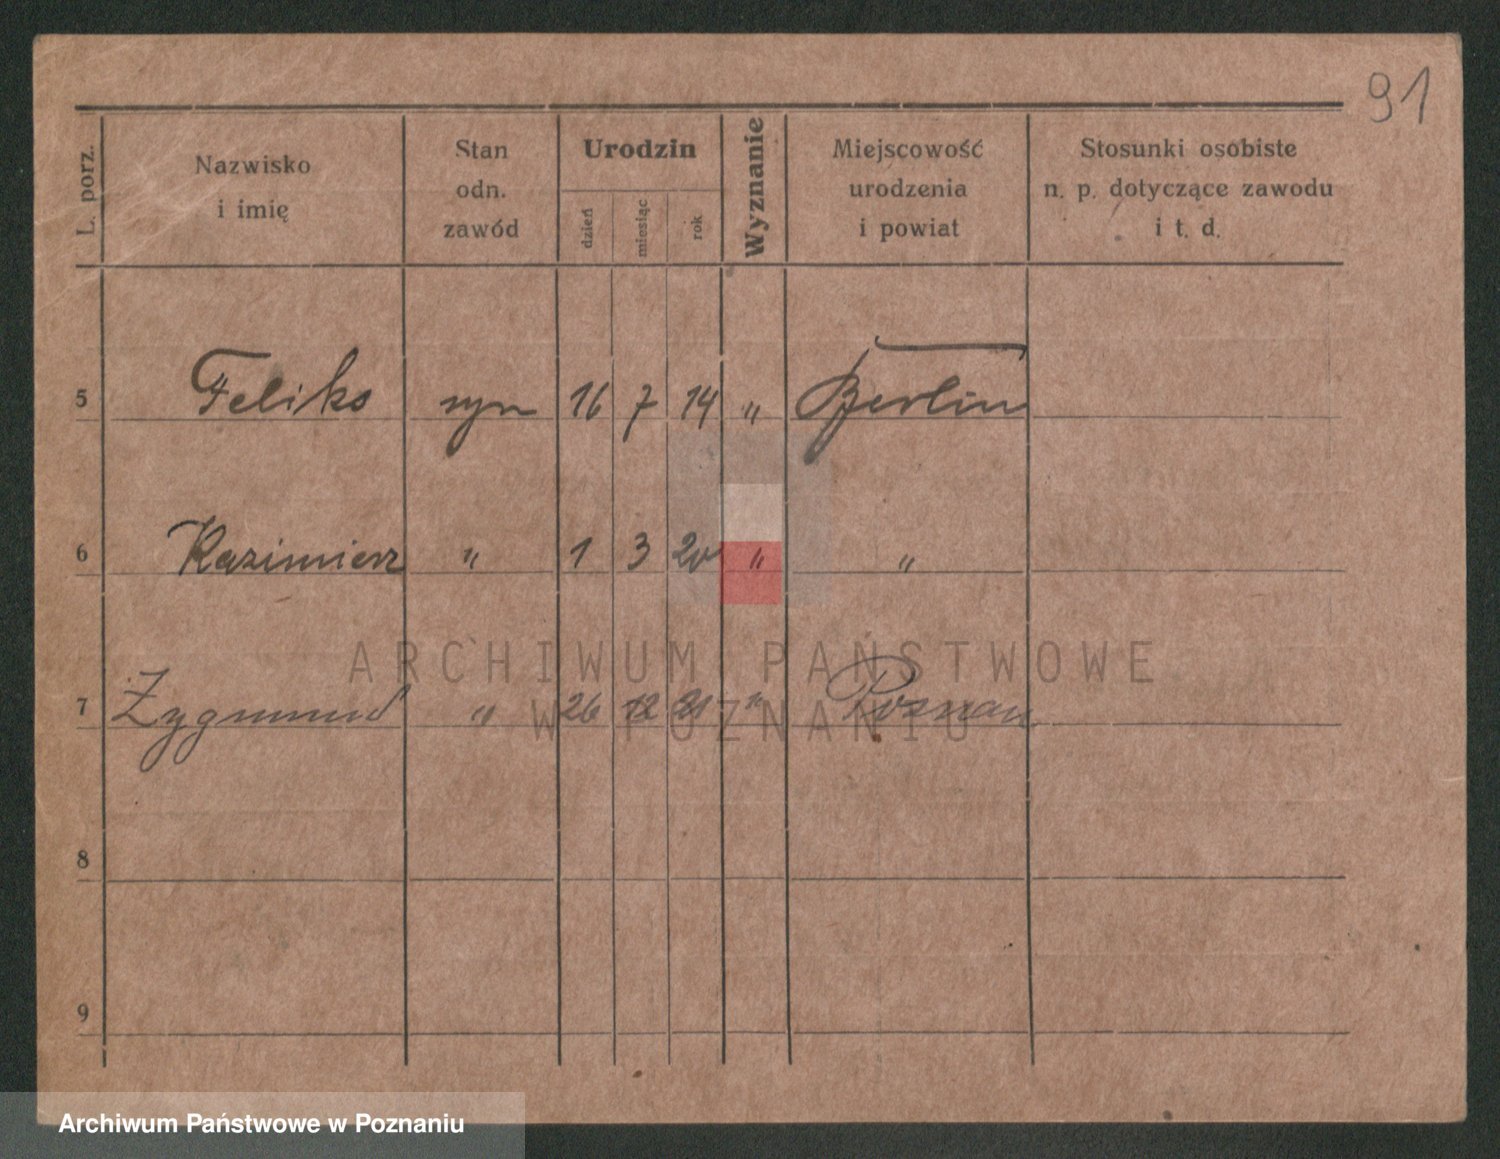 91
L. porz. Nazwisko i imię Stan odn. zawód Urodzin dzień miesiąc rok Wyznanie Miejscowość urodzenia i powiat Stosunki osobiste n. p. dotyczące zawodu i t. d.
5 Feliks syn 16 7 14 " Berlin
6 Kazimierz " 1 3 20 " "
ARCHIWUM PAŃSTWOWE
7 Zygmund " 26 12 21 " Poznan
W POZNANIU
8
9
Archiwum Państwowe w Poznaniu